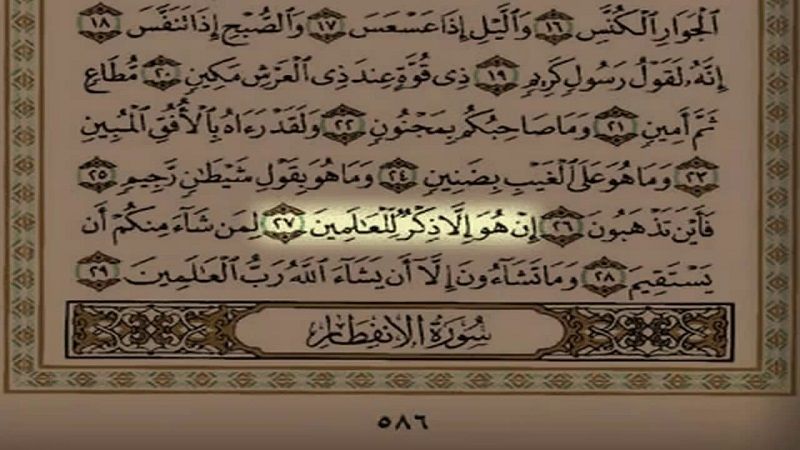 ٱلۡجَوَارِ ٱلۡكُنَّسِ ١٦ وَٱلَّيۡلِ إِذَا عَسۡعَسَ ١٧ وَٱلصُّبۡحِ إِذَا تَنَفَّسَ ١٨
إِنَّهُۥ لَقَوۡلُ رَسُولٖ كَرِيمٖ ١٩ ذِي قُوَّةٍ عِندَ ذِي ٱلۡعَرۡشِ مَكِينٖ ٢٠ مُّطَاعٖ
ثَمَّ أَمِينٖ ٢١ وَمَا صَاحِبُكُم بِمَجۡنُونٖ ٢٢ وَلَقَدۡ رَءَاهُ بِٱلۡأُفُقِ ٱلۡمُبِينِ
٢٣ وَمَا هُوَ عَلَى ٱلۡغَيۡبِ بِضَنِينٖ ٢٤ وَمَا هُوَ بِقَوۡلِ شَيۡطَٰنٖ رَّجِيمٖ ٢٥
فَأَيۡنَ تَذۡهَبُونَ ٢٦ إِنۡ هُوَ إِلَّا ذِكۡرٞ لِّلۡعَٰلَمِينَ ٢٧ لِمَن شَآءَ مِنكُمۡ أَن
يَسۡتَقِيمَ ٢٨ وَمَا تَشَآءُونَ إِلَّآ أَن يَشَآءَ ٱللَّهُ رَبُّ ٱلۡعَٰلَمِينَ ٢٩
سُورَةُ الإِنفِطَارِ
٥٨٦